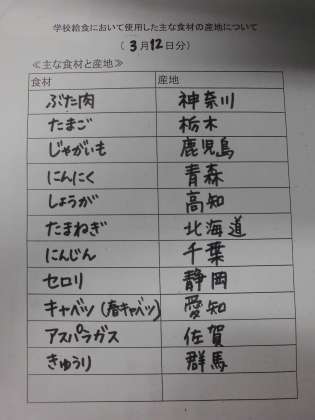 学校給食において使用した主な食材の産地について
(3月12日分)
≪主な食材と産地≫
食材 産地
ぶた肉 神奈川
たまご 栃木
じゃがいも 鹿児島
にんにく 青森
しょうが 高知
たまねぎ 北海道
にんじん 千葉
セロリ 静岡
キャベツ(春キャベツ) 愛知
アスパラガス 佐賀
きゅうり 群馬